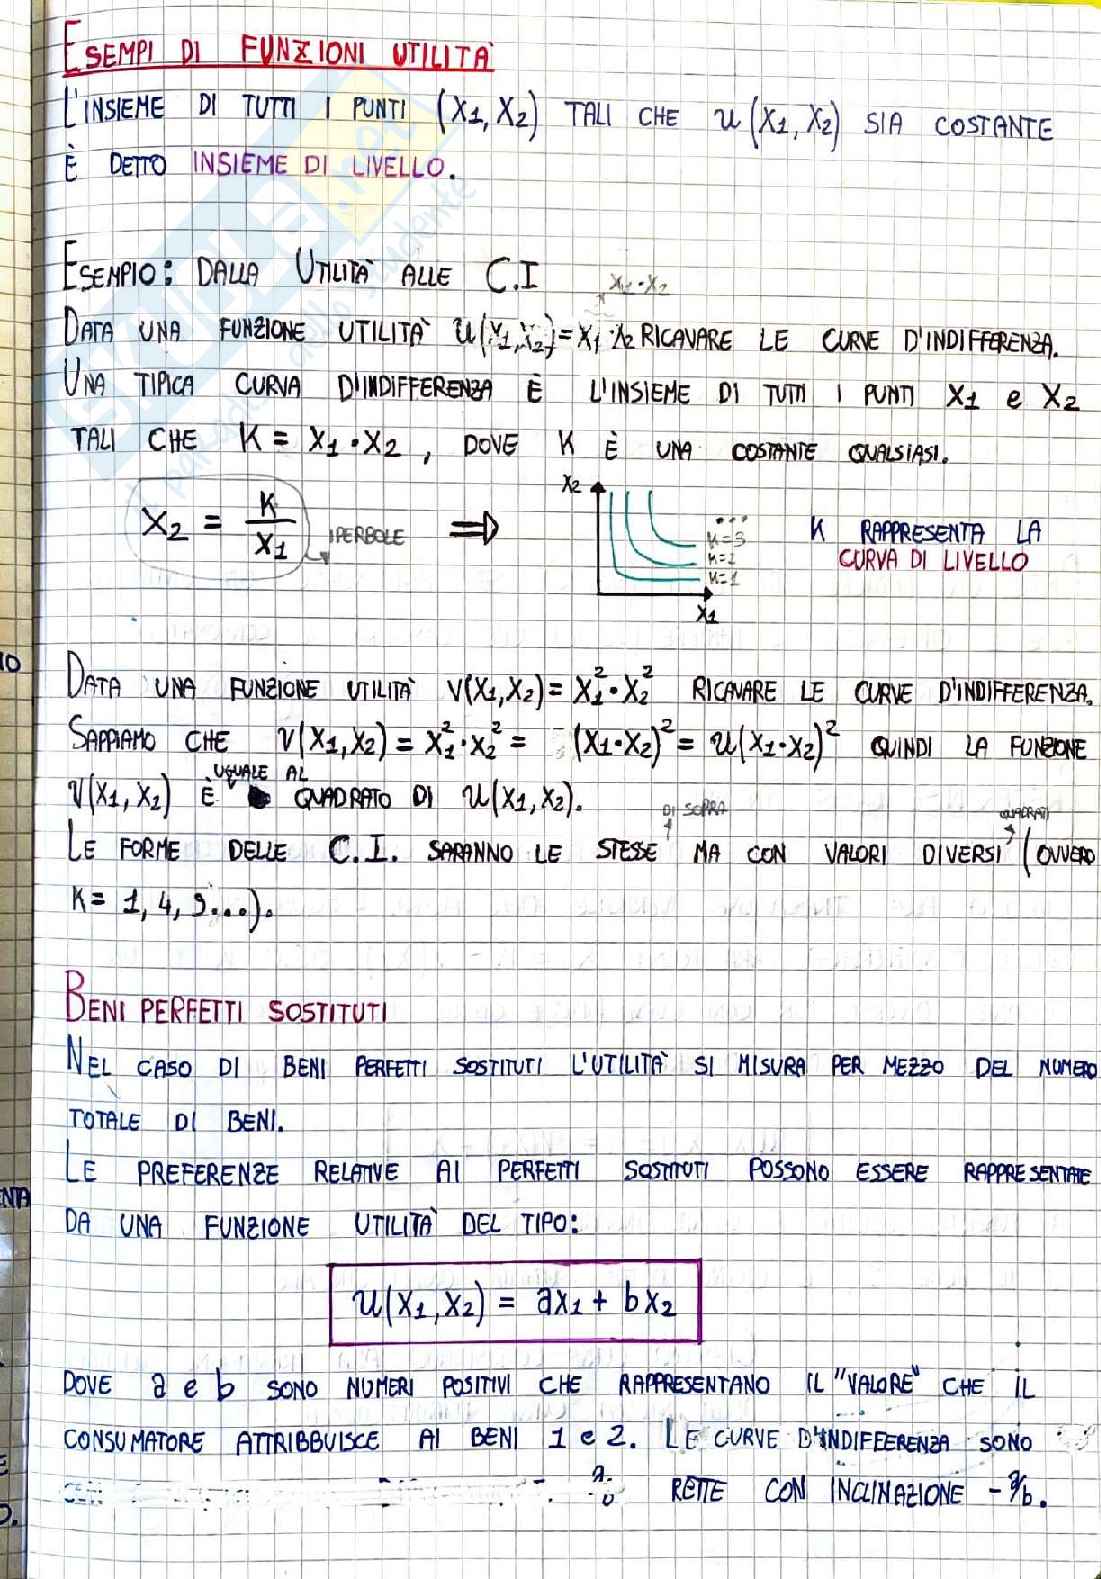 ESEMPI DI FUNZIONI UTILITÀ
L'INSIEME DI TUTTI I PUNTI (X1, X2) TALI CHE u(X1, X2) SIA COSTANTE
È DETTO INSIEME DI LIVELLO.
ESEMPIO: DALLA UTILITÀ ALLE C.I
X1·X2
DATA UNA FUNZIONE UTILITÀ u(X1,X2)=X1 X2 RICAVARE LE CURVE D'INDIFFERENZA.
UNA TIPICA CURVA D'INDIFFERENZA È L'INSIEME DI TUTTI I PUNTI X1 e X2
TALI CHE K = X1·X2, DOVE K È UNA COSTANTE QUALSIASI.
X2 = K/X1 IPERBOLE ⇒
X2
K=3
K=2
K=1
X1
K RAPPRESENTA LA
CURVA DI LIVELLO
DATA UNA FUNZIONE UTILITÀ V(X1,X2)= X1²·X2² RICAVARE LE CURVE D'INDIFFERENZA.
SAPPIAMO CHE V(X1,X2) = X1²·X2² = (X1·X2)² = u(X1·X2)² QUINDI LA FUNZIONE
V(X1,X2) È UGUALE AL QUADRATO DI u(X1,X2).
DI SOPRA
QUADRATI
LE FORME DELLE C.I. SARANNO LE STESSE MA CON VALORI DIVERSI (OVVERO
K= 1, 4, 9...).
BENI PERFETTI SOSTITUTI
NEL CASO DI BENI PERFETTI SOSTITUTI L'UTILITÀ SI MISURA PER MEZZO DEL NUMERO
TOTALE DI BENI.
LE PREFERENZE RELATIVE AI PERFETTI SOSTITUTI POSSONO ESSERE RAPPRESENTATE
DA UNA FUNZIONE UTILITÀ DEL TIPO:
u(X1,X2) = aX1 + bX2
DOVE a e b SONO NUMERI POSITIVI CHE RAPPRESENTANO IL "VALORE" CHE IL
CONSUMATORE ATTRIBBUISCE AI BENI 1 e 2. LE CURVE D'INDIFFERENZA SONO
RETTE CON INCLINAZIONE -a/b.